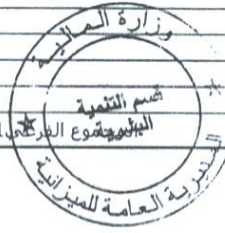 وزارة المالية
قسم التنمية
البشرية
المجموع الفرعي
المديرية العامة للميزانية